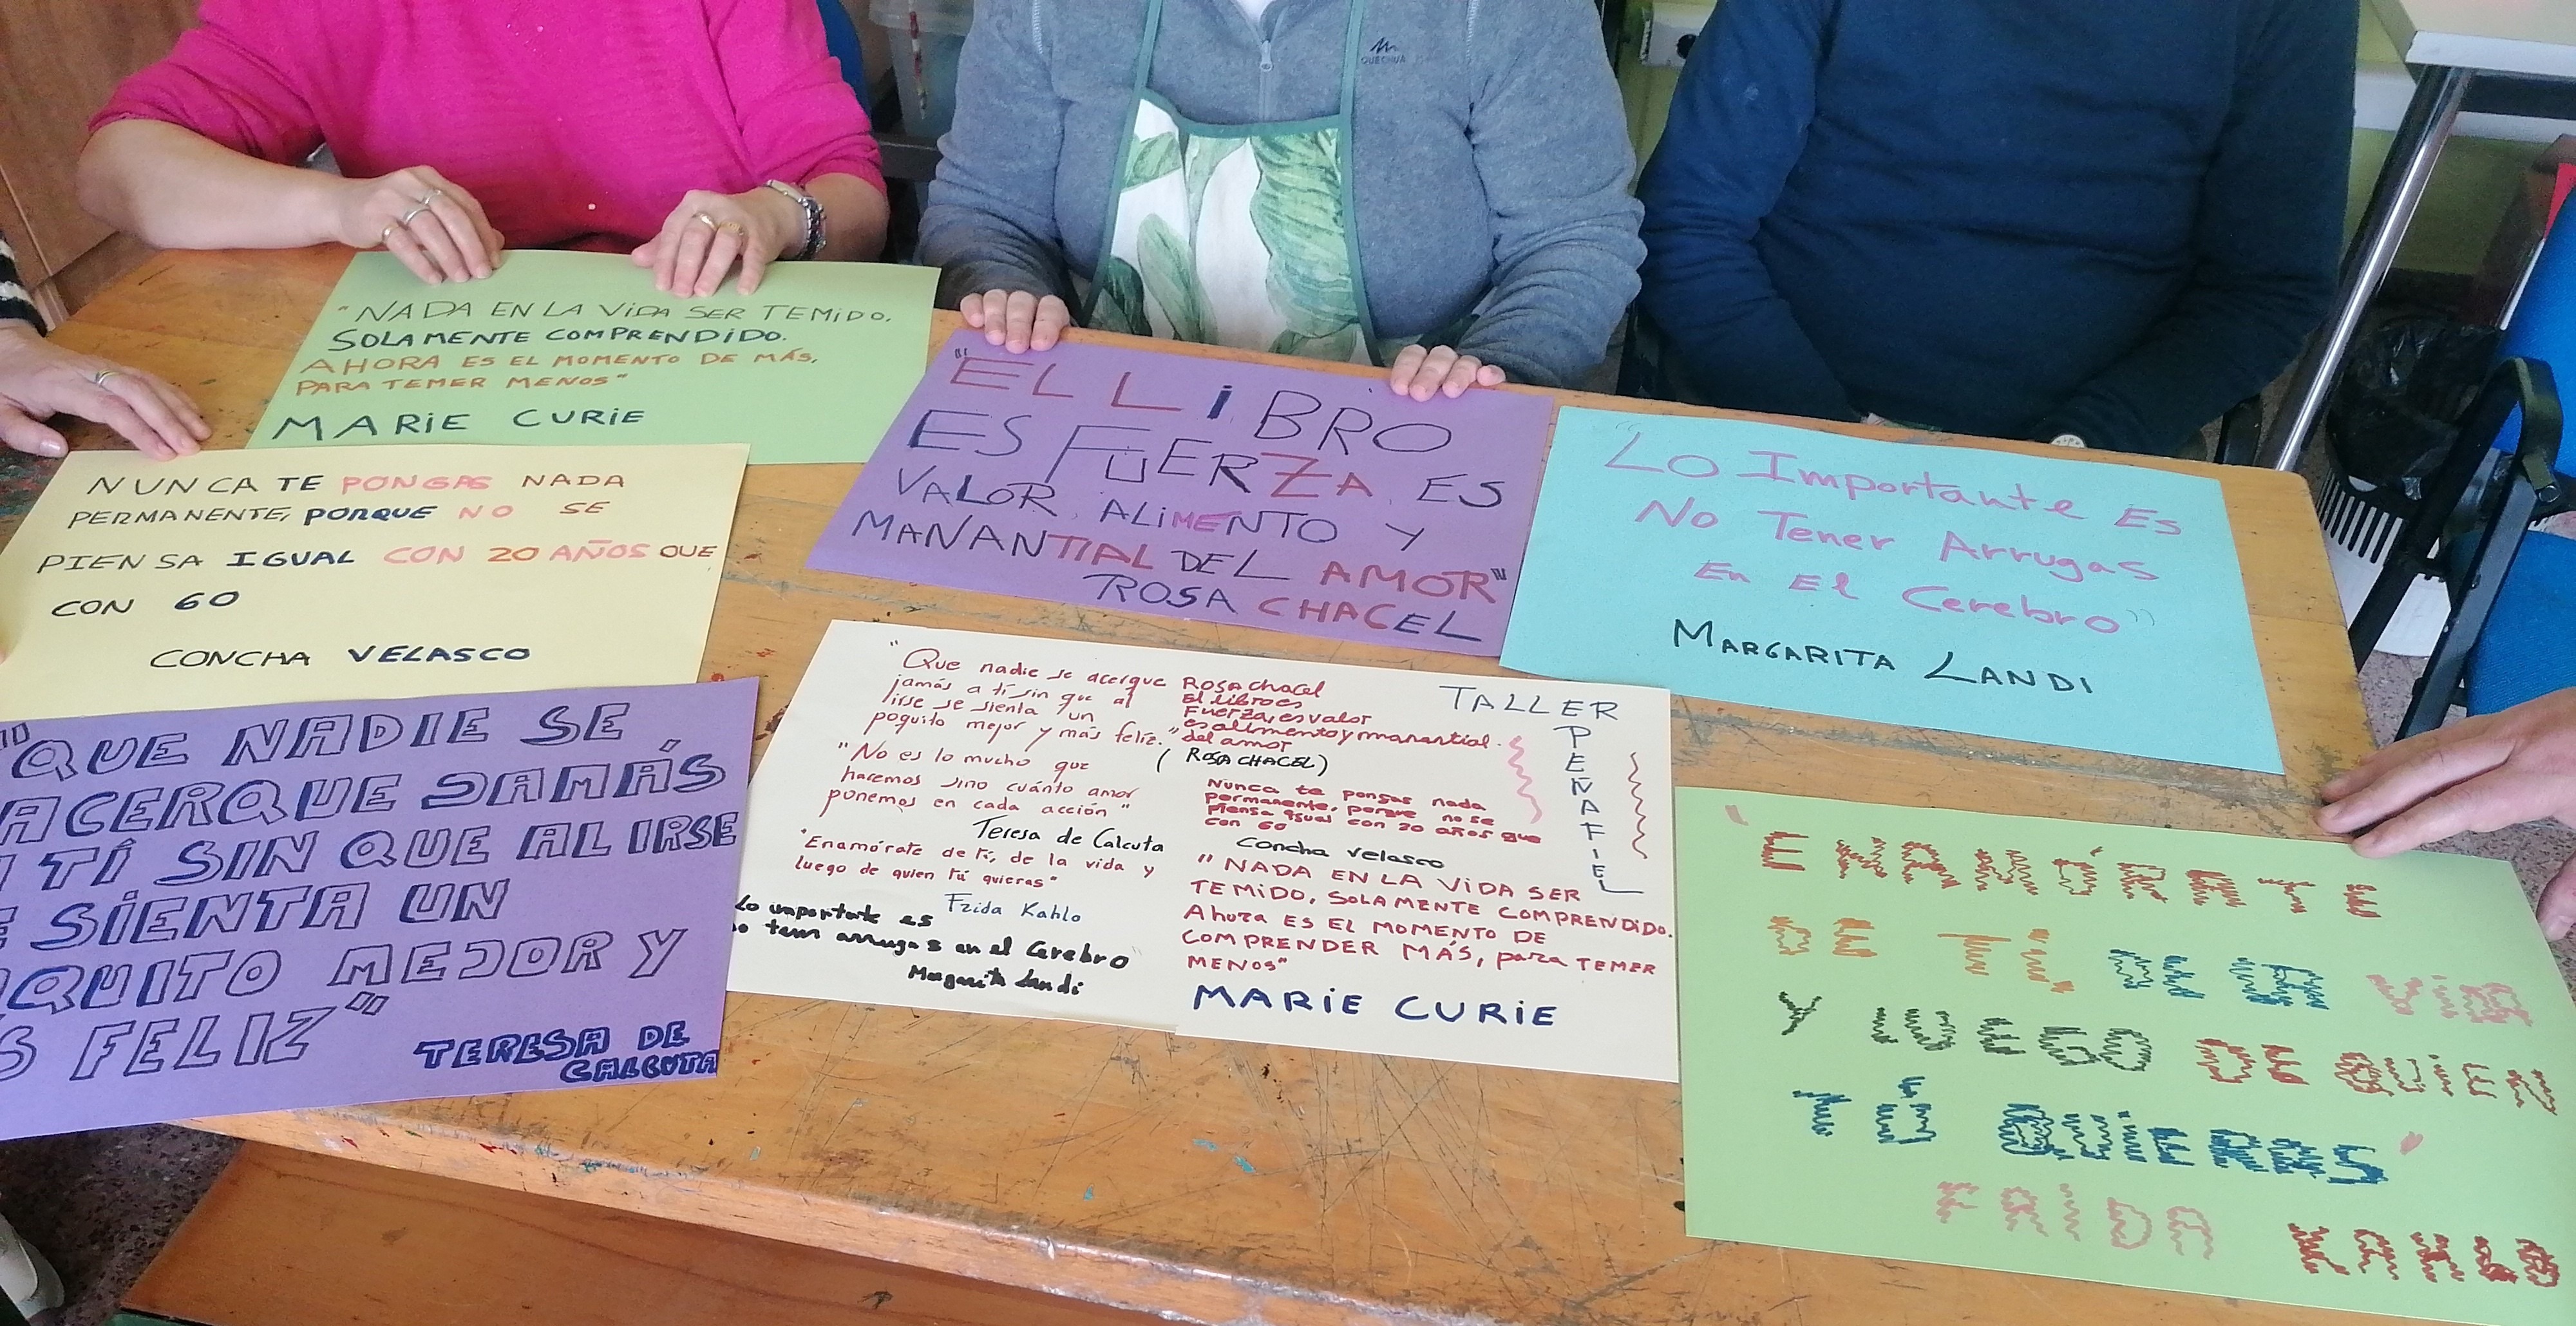 QUECHUA
"NADA EN LA ViDA SER TEMiDO.
SOLAMENTE COMPRENDiDO.
AHORA ES EL MOMENTO DE MÁS,
PARA TEMER MENOS"
MARiE CURiE
NUNCA TE PONGAS NADA
PERMANENTE, PORQUE NO SE
PIENSA IGUAL CON 20 AÑOS QUE
CON 60
CONCHA VELASCO
"EL LiBRO
ES FUERZA, ES
VALOR, ALiMENTO Y
MANANTIAL DEL AMOR"
ROSA CHACEL
"LO Importante Es
No Tener Arrugas
En El Cerebro"
MARGARITA LANDI
"QUE NADIE SE
ACERQUE JAMÁS
TÍ SIN QUE AL IRSE
SiENTA UN
QUITO MEJOR Y
S FELIZ"
TERESA DE
CALCUTA
"Que nadie se acerque
jamás a tí sin que al
irse se sienta un
poquito mejor y más feliz."
"No es lo mucho que
hacemos sino cuánto amor
ponemos en cada acción"
Teresa de Calcuta
"Enamórate de tí, de la vida y
luego de quien tú quieras"
Frida Kahlo
Lo importante es
no tener arrugas en el Cerebro"
Margarita Landi
ROSA chacel
El libro es
Fuerza, es valor
es alimento y manantial.
del amor
(ROSA CHACEL)
Nunca te pongas nada
permanente, porque no se
Piensa igual con 20 años que
con 60
Concha Velasco
"NADA EN LA ViDA SER
TEMiDO, SOLAMENTE COMPRENDIDO.
Ahora ES EL MOMENTO DE
COMPRENDER MÁS, para TEMER
MENOS"
MARiE CURiE
TALLER
PEÑAFIEL
"ENAMÓRATE
DE TÍ, DE LA ViDA
Y LUEGO DE QUiEN
TÚ QUiERAS"
FRiDA KAHLO